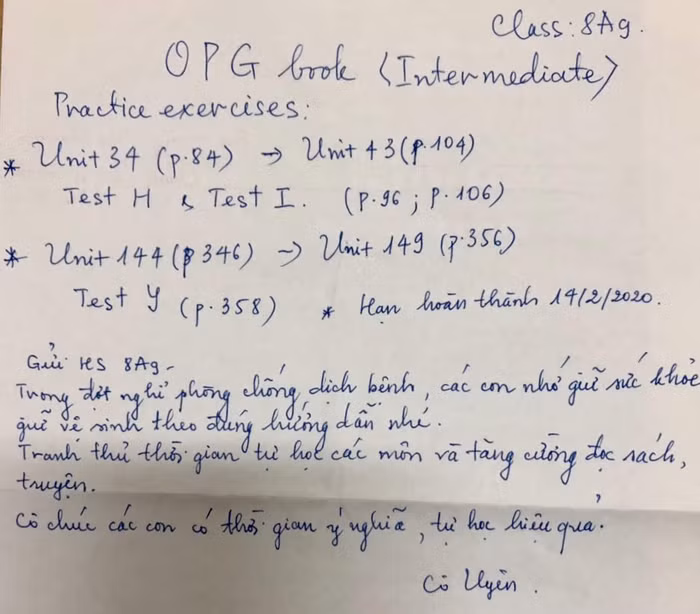 Class: 8A9.
OPG book (Intermediate)
Practice exercises:
* Unit 34 (p.84) → Unit 43 (p.104)
Test H & Test I. (p.96 ; p.106)
* Unit 144 (p 346) → Unit 149 (p.356)
Test Y (p.358) * Hạn hoàn thành 14/2/2020.
Gửi HS 8A9-
Trong đợt nghỉ phòng chống dịch bệnh, các con nhớ giữ sức khỏe
giữ vệ sinh theo đúng hướng dẫn nhé.
Tranh thủ thời gian tự học các môn và tăng cường đọc sách,
truyện.
Cô chúc các con có thời gian ý nghĩa, tự học hiệu quả.
Cô Uyên.